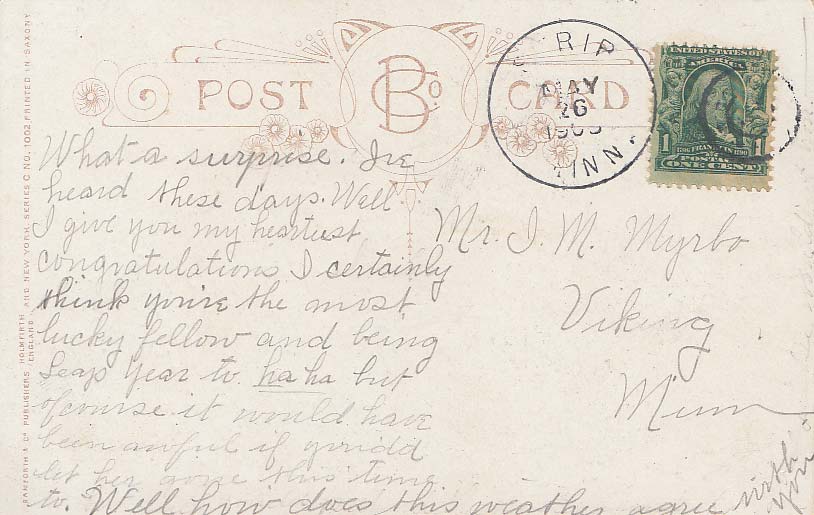 POST CARD
B Co
RIP
MAY
26
MINN.
UNITED STATES OF
AMERICA
1 1
FRANKLIN
POSTAGE
ONE CENT
BAMFORTH & Co PUBLISHERS, HOLMFIRTH AND NEW YORK. SERIES C NO. 1002. PRINTED IN SAXONY
ENGLAND
What a surprise. I've
heard these days. Well
I give you my heartiest
congratulations I certainly
think you're the most
lucky fellow and being
Leap Year to ha ha but
ofcourse it would have
been awful if you'dd
let her gone this time
to. Well how does this weather agree with
you
Mr. J. M. Myrbo
Viking
Minn